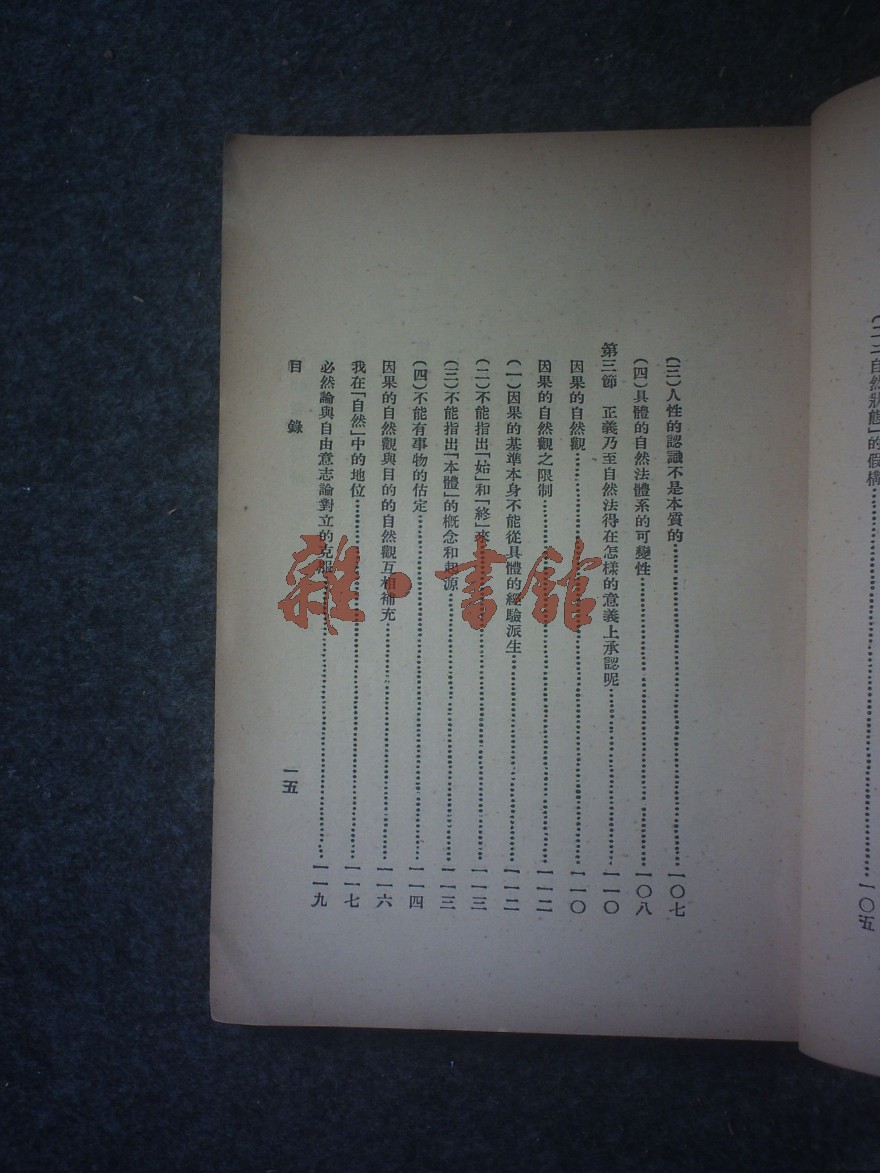 (二)「自然狀態」的假構……一〇五
(三)人性的認識不是本質的……一〇七
(四)具體的自然法體系的可變性……一〇八
第三節 正義乃至自然法得在怎樣的意義上承認呢……一一〇
因果的自然觀……一一〇
因果的自然觀之限制……一一二
(一)因果的基準本身不能從具體的經驗派生……一一二
(二)不能指出「始」和「終」來……一一三
(三)不能指出「本體」的概念和起源……一一三
(四)不能有事物的估定……一一四
因果的自然觀與目的的自然觀互相補充……一一六
我在「自然」中的地位……一一七
必然論與自由意志論對立的克服……一一九
目錄 一五
雜·書館